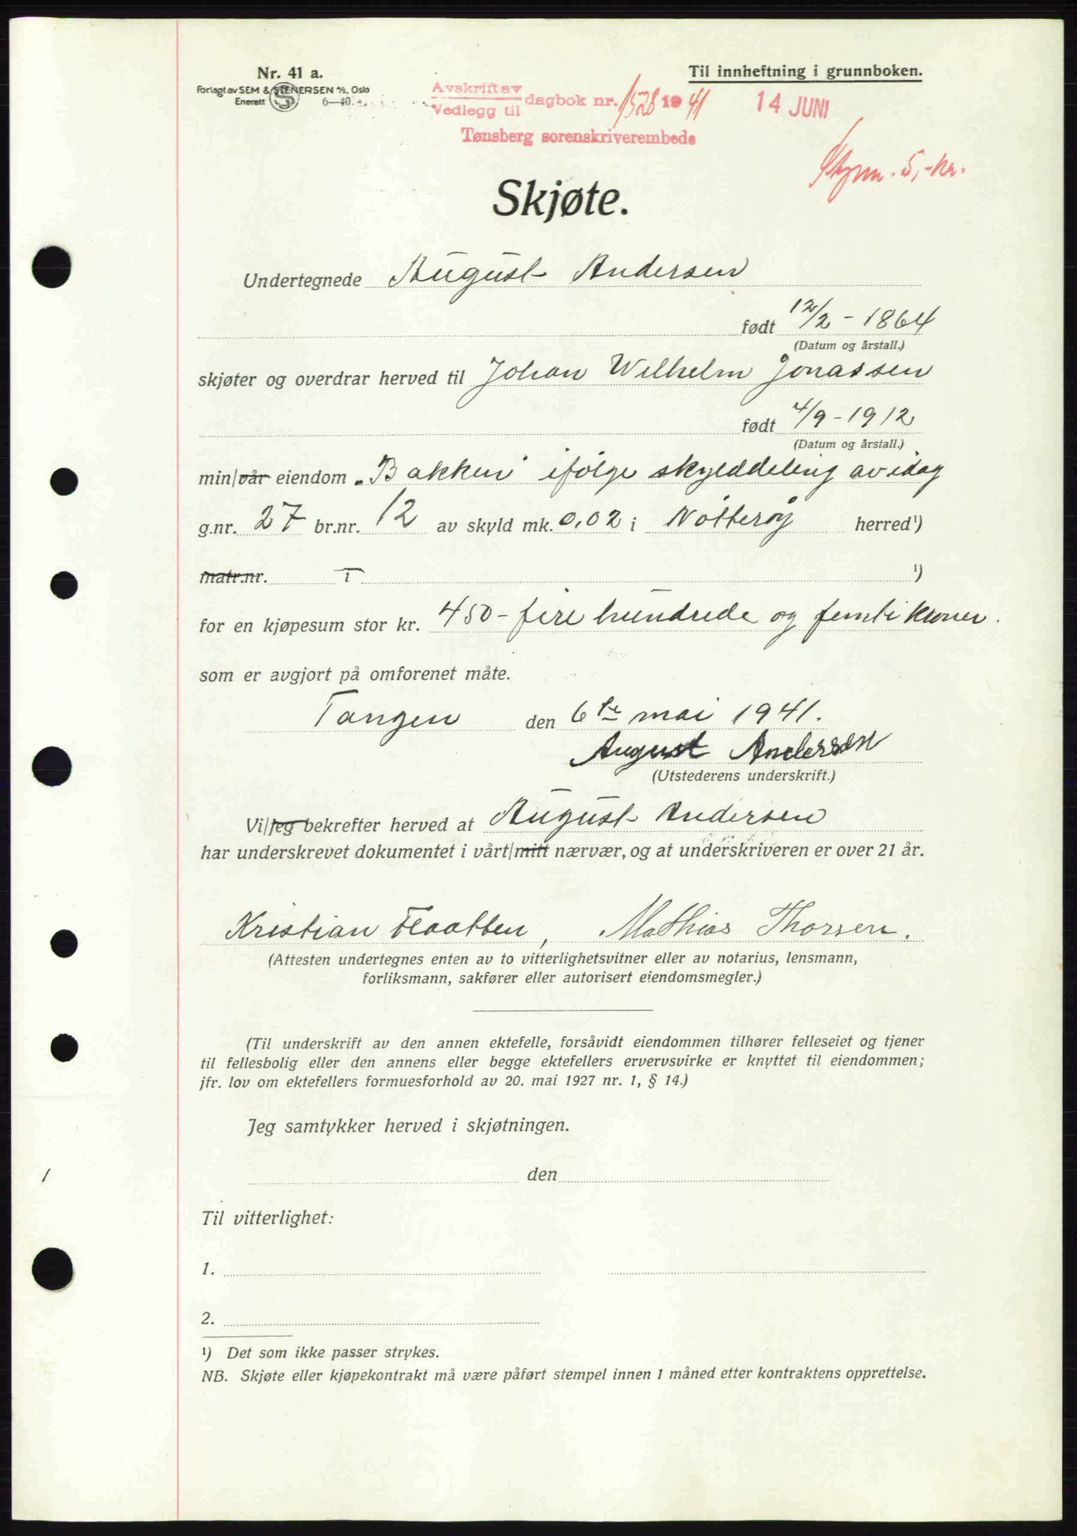 Nr. 41 a.
Forlagt av SEM & STENERSEN A/S, Oslo
Enerett 6—40.
Til innheftning i grunnboken.
Avskrift av
Vedlegg til dagbok nr. 1528 1941
Tønsberg sorenskriverembede
14 JUNI
5,-kr.
Skjøte.
Undertegnede August Andersen
født 12/2 - 1864
(Datum og årstall.)
skjøter og overdrar herved til Johan Wilhelm Jonassen
født 4/9 - 1912
(Datum og årstall.)
min/vår eiendom „Bakken" ifølge skylddeling av idag
g.nr. 27 br.nr. 12 av skyld mk. 0,02 i Nøtterøy herred¹)
matr.nr. i ¹)
for en kjøpesum stor kr. 450 - fire hundrede og femti kroner.
som er avgjort på omforenet måte.
Tangen den 6te mai 1941.
August Andersen
(Utstederens underskrift.)
Vi/jeg bekrefter herved at August Andersen
har underskrevet dokumentet i vårt/mitt nærvær, og at underskriveren er over 21 år.
Kristian Flaatten, Mathias Thorsen.
(Attesten undertegnes enten av to vitterlighetsvitner eller av notarius, lensmann,
forliksmann, sakfører eller autorisert eiendomsmegler.)
(Til underskrift av den annen ektefelle, forsåvidt eiendommen tilhører felleseiet og tjener
til fellesbolig eller den annens eller begge ektefellers ervervsvirke er knyttet til eiendommen;
jfr. lov om ektefellers formuesforhold av 20. mai 1927 nr. 1, § 14.)
Jeg samtykker herved i skjøtningen.
den
Til vitterlighet:
1.
2.
¹) Det som ikke passer strykes.
NB. Skjøte eller kjøpekontrakt må være påført stempel innen 1 måned etter kontraktens opprettelse.